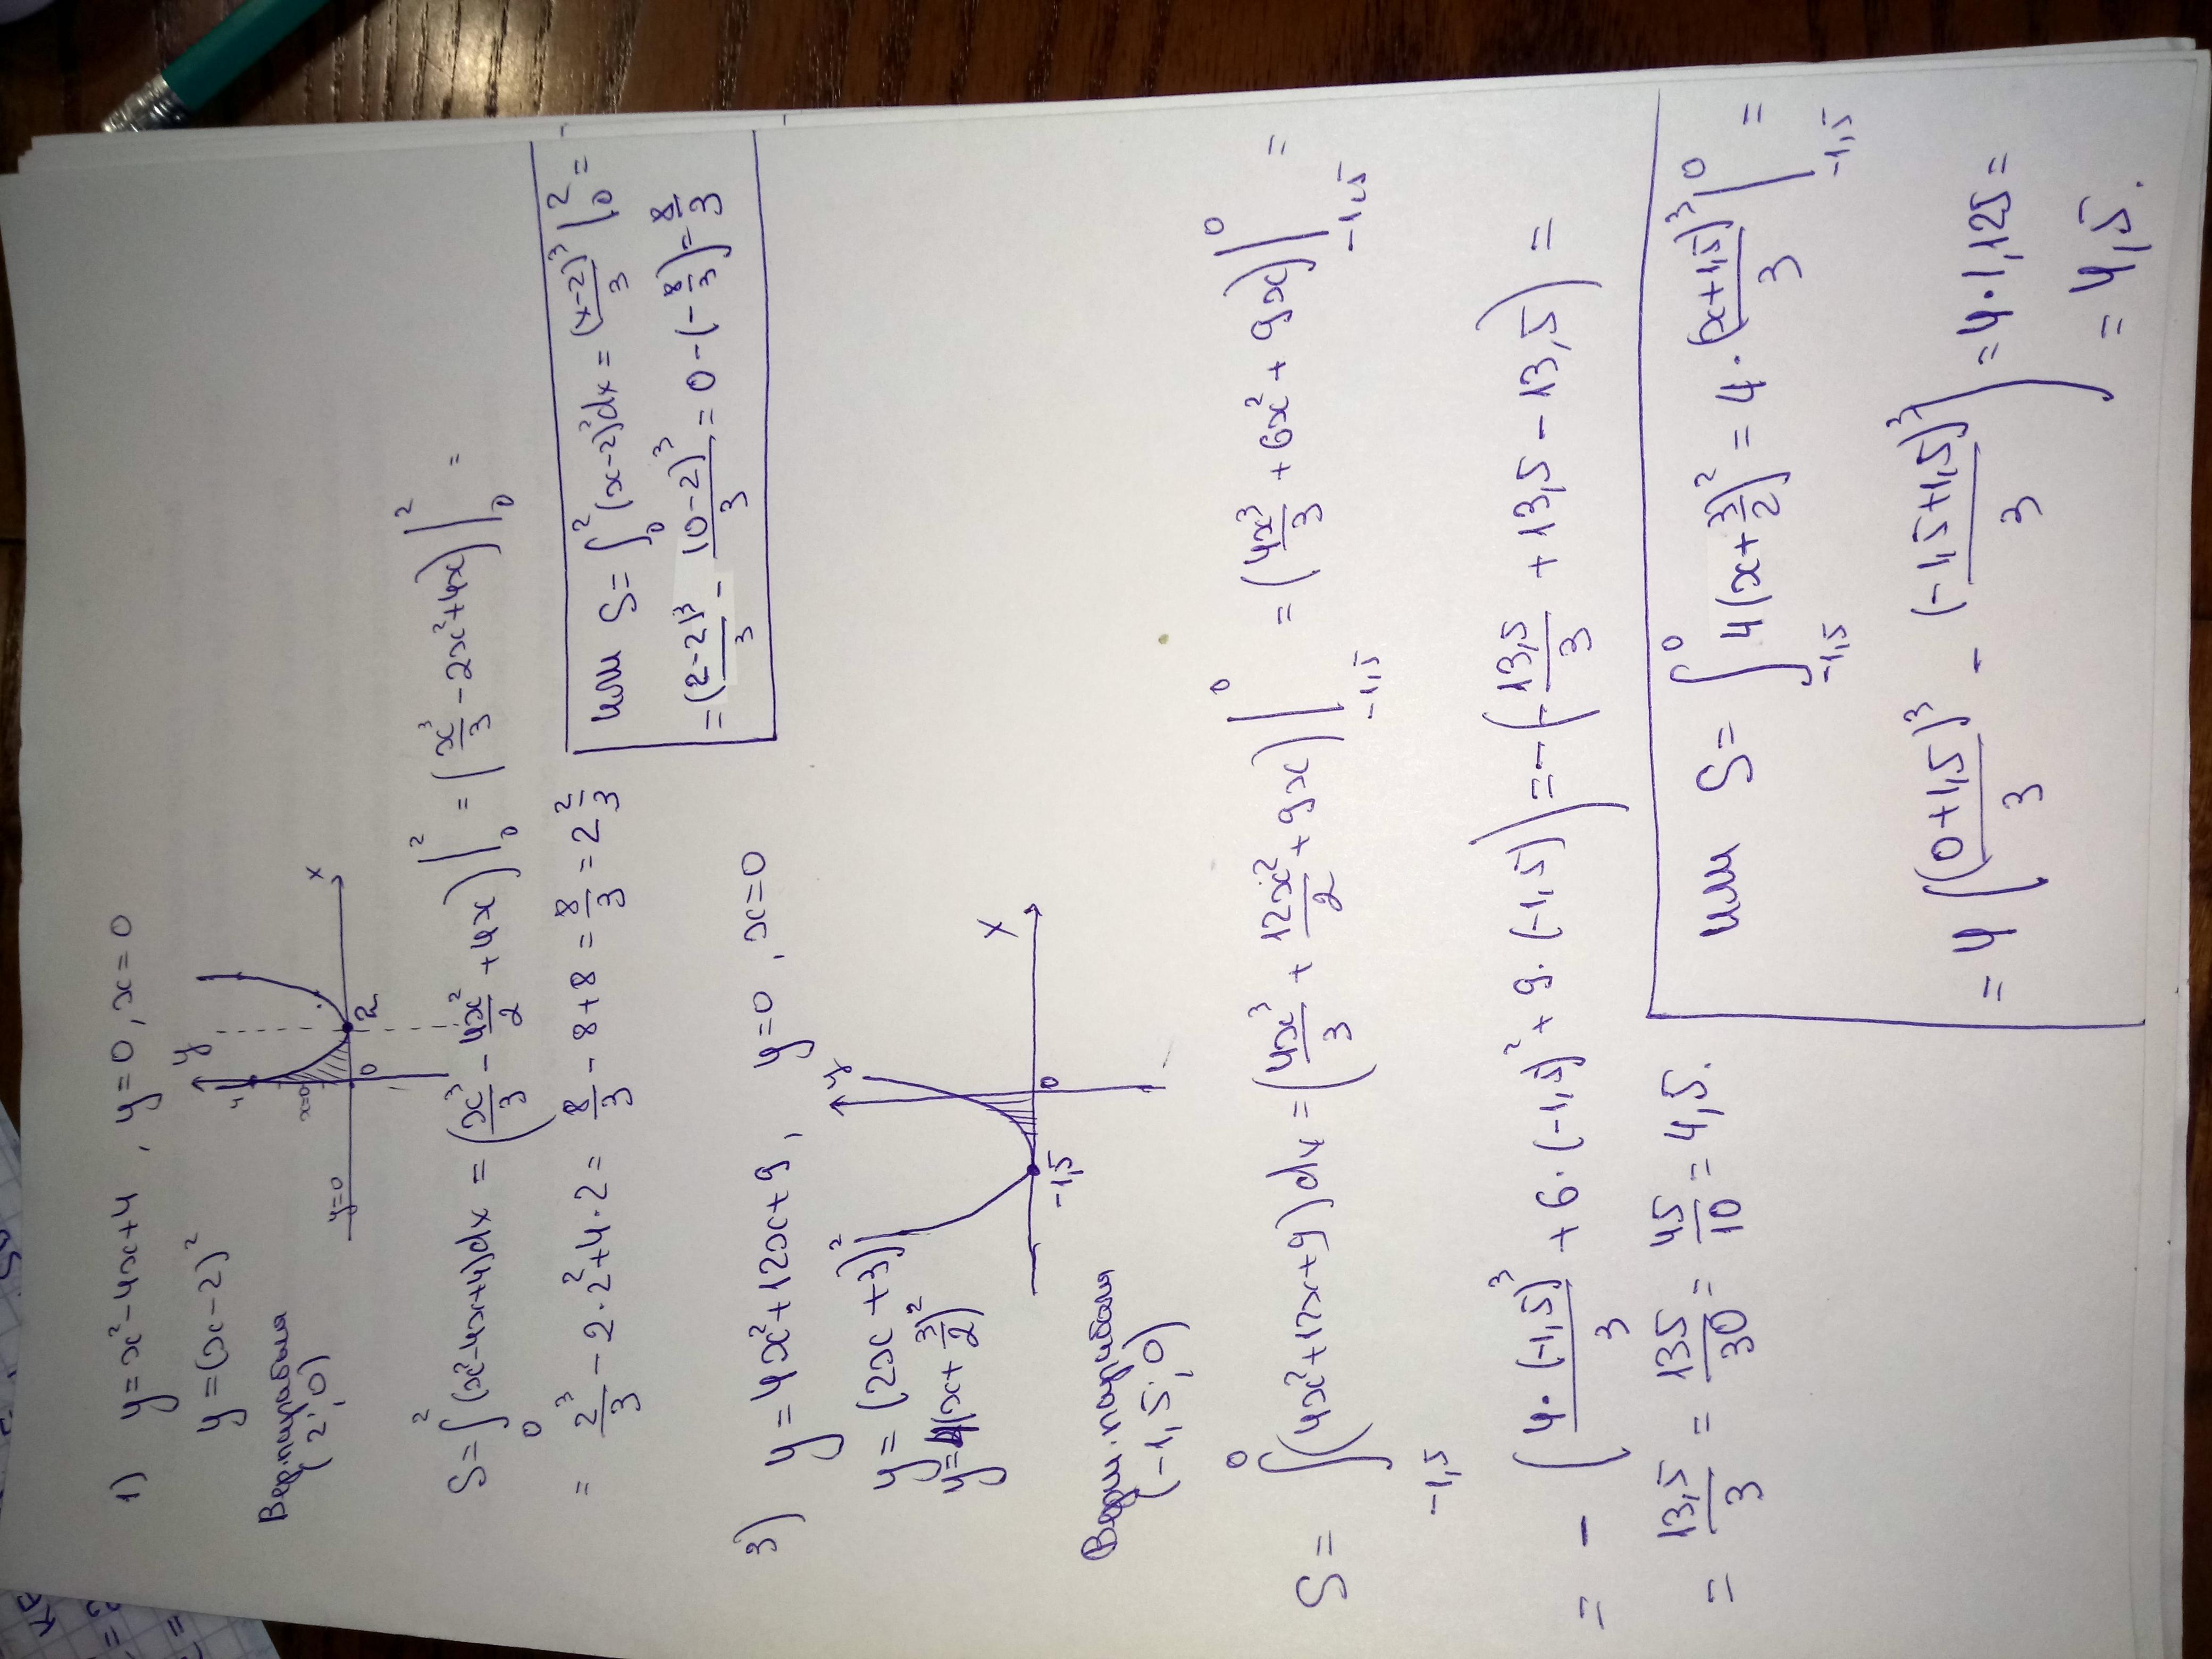 1) y = x² - 4x + 4 , y = 0 , x = 0
y = (x - 2)²
Вер. параб
(2; 0)
y
4
x=0
y=0
0
2
x
S = ∫₀² (x² - 4x + 4)dx = (x³/3 - 4x²/2 + 4x)|₀² = (x³/3 - 2x² + 4x)|₀² =
= 2³/3 - 2·2² + 4·2 = 8/3 - 8 + 8 = 8/3 = 2 2/3
или S = ∫₀² (x-2)²dx = (x-2)³/3 |₀² =
= (2-2)³/3 - (0-2)³/3 = 0 - (-8/3) = 8/3
3) y = 4x² + 12x + 9 , y = 0 , x = 0
y = (2x + 3)²
y = 4(x + 3/2)²
Верш. параболы
(-1,5; 0)
y
x
-1,5
0
S = ∫₋₁,₅⁰ (4x² + 12x + 9)dx = (4x³/3 + 12x²/2 + 9x)|₋₁,₅⁰ = (4x³/3 + 6x² + 9x)|₋₁,₅⁰ =
= - (4·(-1,5)³/3 + 6·(-1,5)² + 9·(-1,5)) = - (-13,5/3 + 13,5 - 13,5) =
= 13,5/3 = 135/30 = 45/10 = 4,5.
или S = ∫₋₁,₅⁰ 4(x + 3/2)² = 4 · (x+1,5)³/3 |₋₁,₅⁰ =
= 4((0+1,5)³/3 - (-1,5+1,5)³/3) = 4·1,125 =
= 4,5.